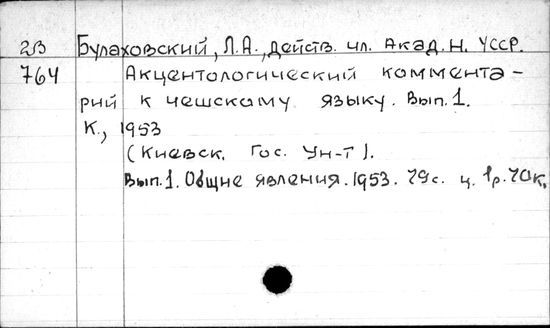 2В Булаховский, Л.А., действ. чл. Акад. Н. УССР.
764 Акцентологический коммента-
рий к чешскому языку. Вып. 1.
К., 1953
(Киевск. Гос. Ун-т).
Вып. 1. Общие явления. 1953. 79с. ц. 1р. 70к.